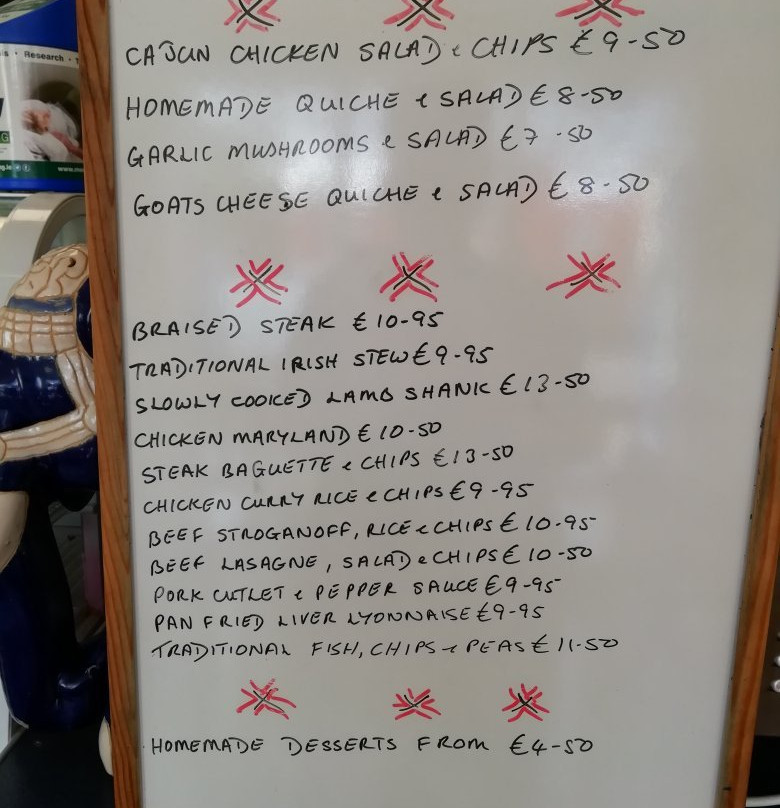 Research
CAJUN CHICKEN SALAD & CHIPS € 9-50
HOMEMADE QUICHE & SALAD € 8-50
GARLIC MUSHROOMS & SALAD € 7-50
GOATS CHEESE QUICHE & SALAD € 8-50
BRAISED STEAK € 10-95
TRADITIONAL IRISH STEW € 9-95
SLOWLY COOKED LAMB SHANK € 13-50
CHICKEN MARYLAND € 10-50
STEAK BAGUETTE & CHIPS € 13-50
CHICKEN CURRY RICE & CHIPS € 9-95
BEEF STROGANOFF, RICE & CHIPS € 10-95
BEEF LASAGNE, SALAD & CHIPS € 10-50
PORK CUTLET & PEPPER SAUCE € 9-95
PAN FRIED LIVER LYONNAISE € 9-95
TRADITIONAL FISH, CHIPS & PEAS € 11-50
HOMEMADE DESSERTS FROM €4-50